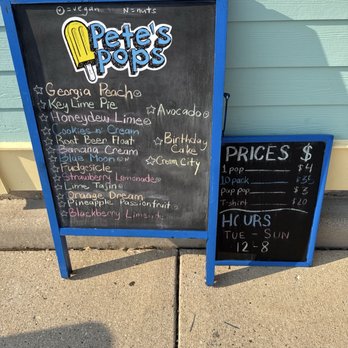 v=vegan N=nuts
Pete's
Pops
Georgia Peach v
Key Lime Pie
Honeydew Lime v
Cookies n' Cream
Root Beer Float
Banana Cream
Blue Moon
Fudgesicle
Strawberry Lemonade
Lime Tajin
Orange Dream
Pineapple Passionfruit
Blackberry Lime
Avocado
Birthday
Cake
Cream City
PRICES $
1 pop $4
10 pack
pup pop $3
T-shirt $20
HOURS
TUE - SUN
12-8